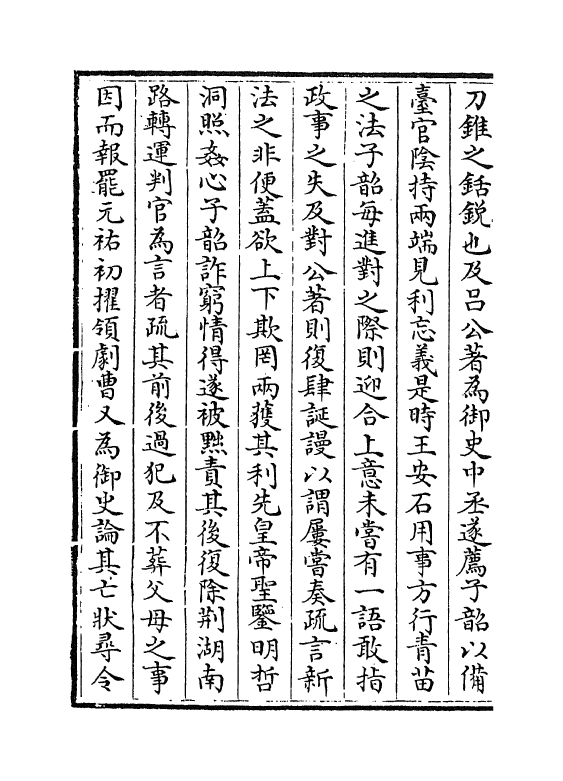 刀錐之銛鋭也及吕公著為御史中丞遂薦子韶以備
臺官陰持兩端見利忘義是時王安石用事方行青苗
之法子韶毎進對之際則迎合上意未嘗有一語敢指
政事之失及對公著則復肆誕謾以謂屢嘗奏疏言新
法之非便蓋欲上下欺罔兩獲其利先皇帝聖鑒明哲
洞照姦心子韶詐窮情得遂被黜責其後復除荆湖南
路轉運判官為言者疏其前後過犯及不葬父母之事
因而報罷元祐初擢領劇曹又為御史論其亡狀尋令